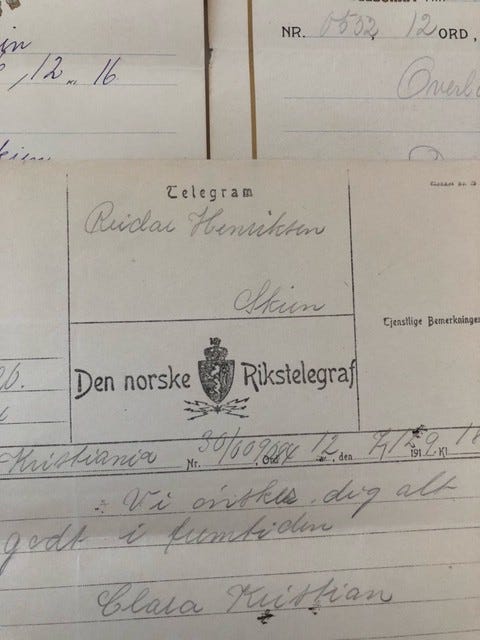 12 16
NR. 0532 12 ORD,
Telegram
Reidar Henriksen
Skien
Tjenstlige Bemerkninger
Den norske Rikstelegraf
Kristiania Nr. Ord 12 , den 191 9 Kl
Vi ønsker dig alt
godt i fremtiden
Clara Kristian